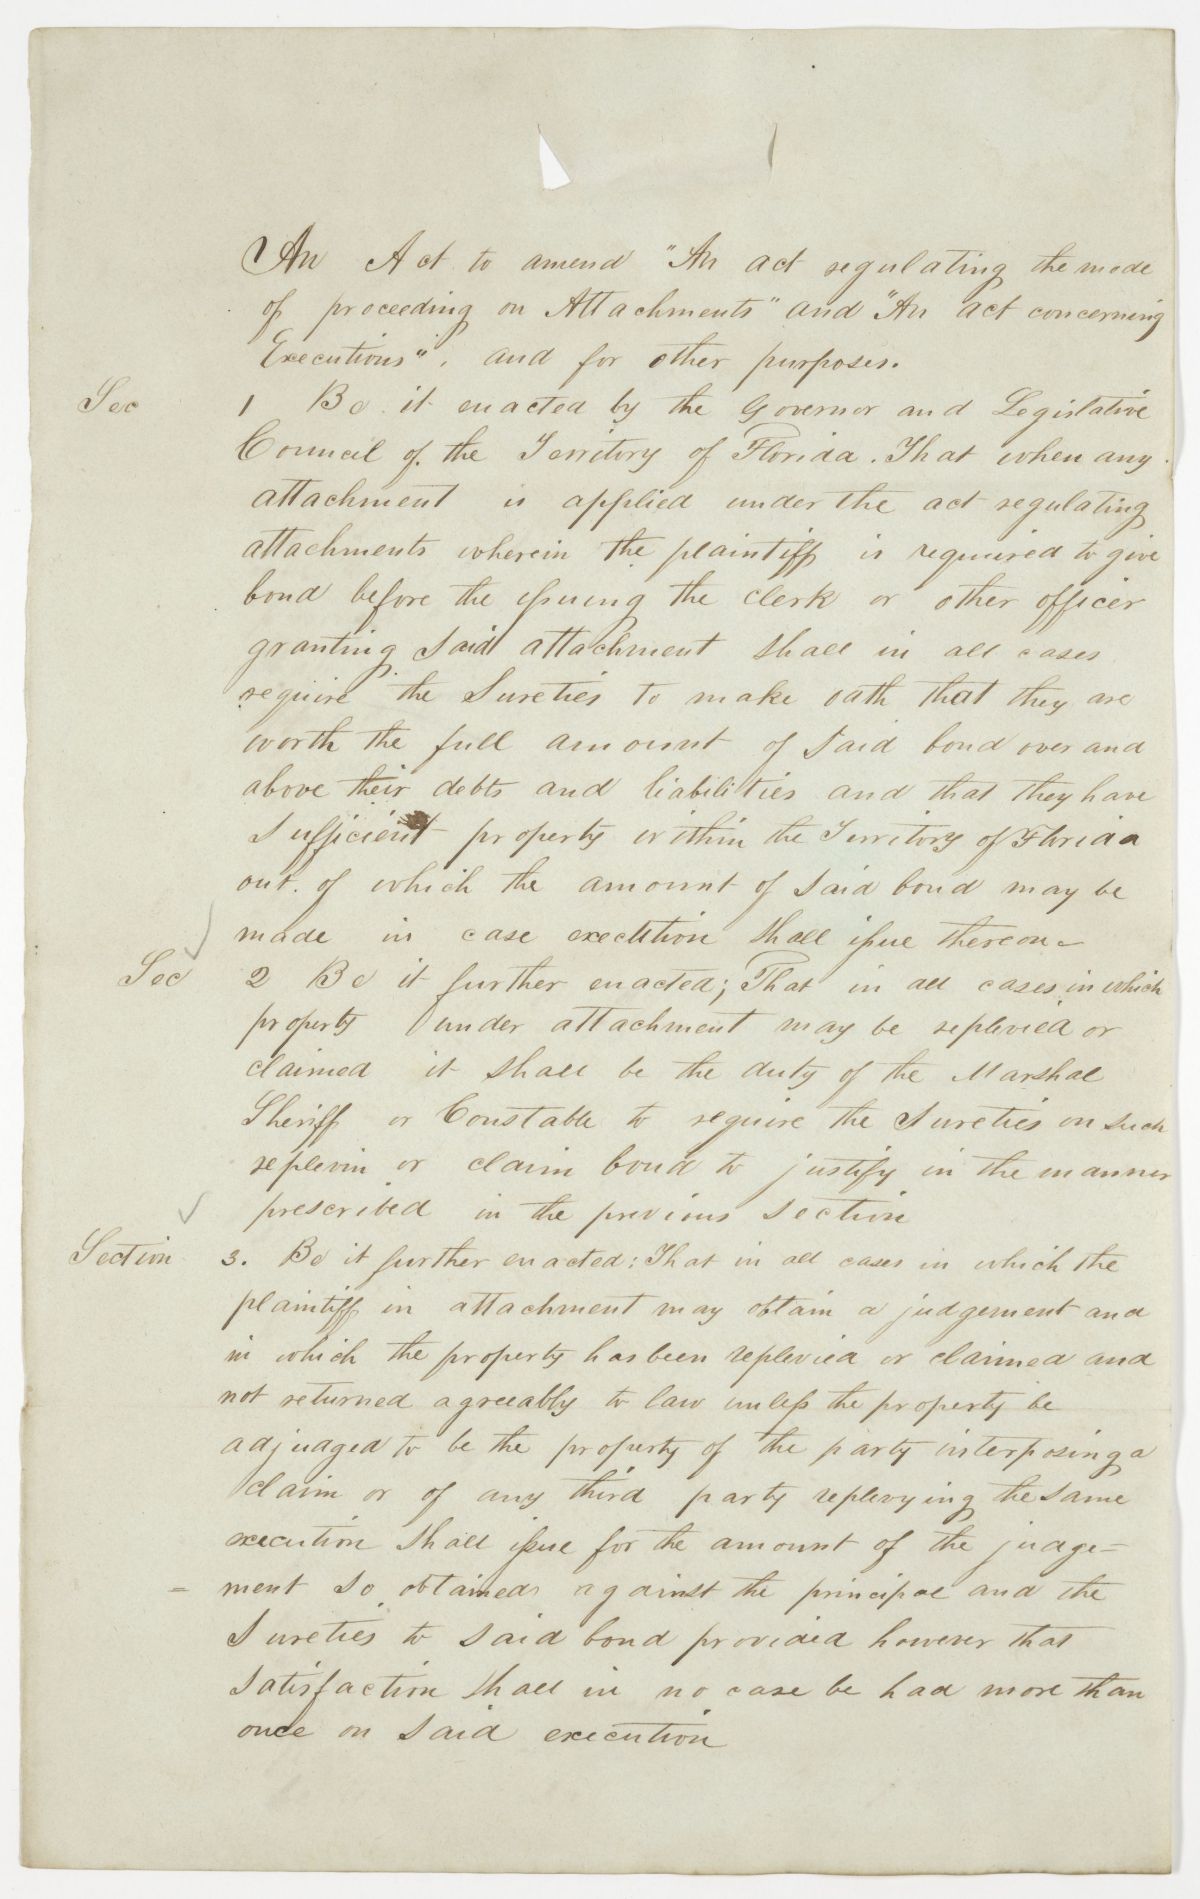 An Act to amend "An act regulating the mode
of proceeding on Attachments" and "An act concerning
Executions", and for other purposes.
Sec 1 Be it enacted by the Governor and Legislative
Council of the Territory of Florida. That when any
attachment is applied under the act regulating
attachments wherein the plaintiff is required to give
bond before the issuing the clerk or other officer
granting said attachment shall in all cases
require the Sureties to make oath that they are
worth the full amount of said bond over and
above their debts and liabilities and that they have
sufficient property within the Territory of Florida
out of which the amount of said bond may be
made in case execution shall issue thereon
Sec 2 Be it further enacted; That in all cases in which
property under attachment may be replevied or
claimed it shall be the duty of the Marshal
Sheriff or Constable to require the Sureties on such
replevin or claim bond to justify in the manner
prescribed in the previous section
Section 3. Be it further enacted: That in all cases in which the
plaintiff in attachment may obtain a judgement and
in which the property has been replevied or claimed and
not returned agreeably to law unless the property be
adjudged to be the property of the party interposing a
claim or of any third party replevying the same
execution shall issue for the amount of the judge=
=ment so obtained against the principal and the
Sureties to said bond provided however that
satisfaction shall in no case be had more than
once on said execution